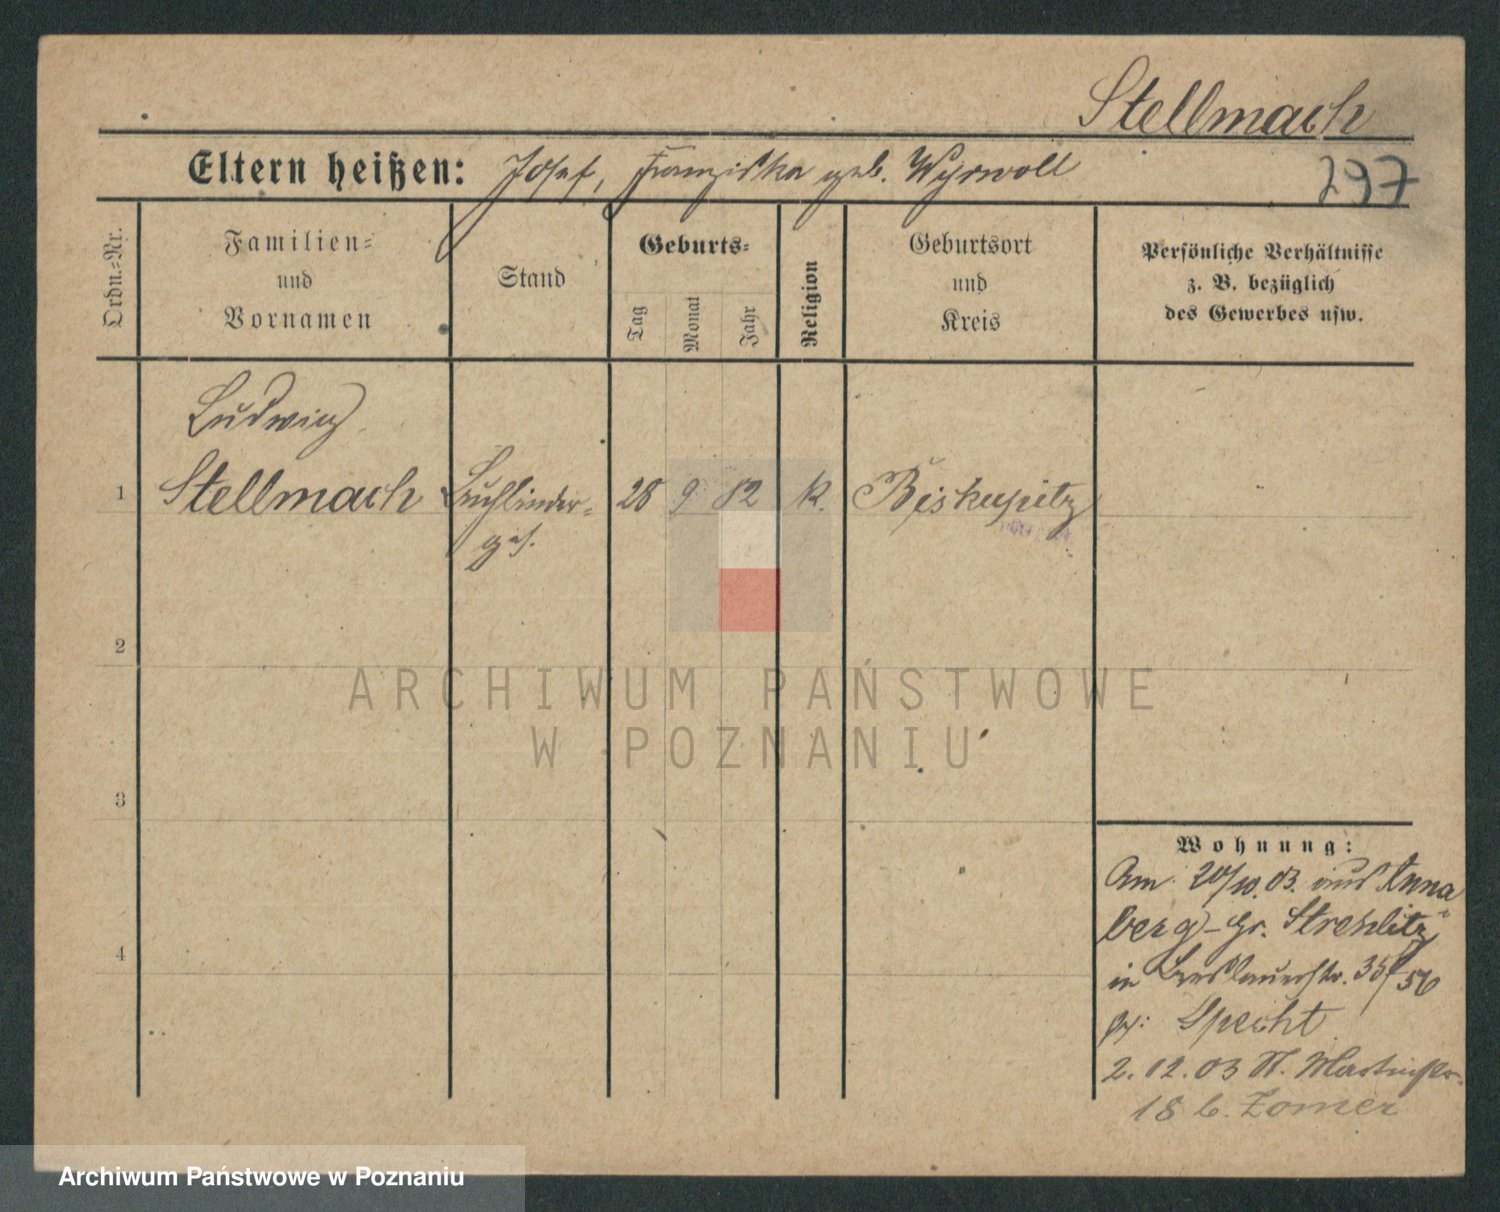 Stellmach
Eltern heißen: Josef, Franziska geb. Wyrwoll
297
Ordn.-Nr.
Familien-
und
Vornamen
Stand
Geburts-
Tag
Monat
Jahr
Religion
Geburtsort
und
Kreis
Persönliche Verhältnisse
z. B. bezüglich
des Gewerbes usw.
Ludwig
1 Stellmach Buchbinder- 28 9 82 k. Biskupitz
ges.
2
3
4
ARCHIWUM PAŃSTWOWE
W POZNANIU
Wohnung:
Am 20/10. 03. aus Anna
berg - Gr. Strehlitz
in Breslauerstr. 35/36
bei: Specht
2. 12. 03 St. Martinstr.
18 b. Zomer
Archiwum Państwowe w Poznaniu